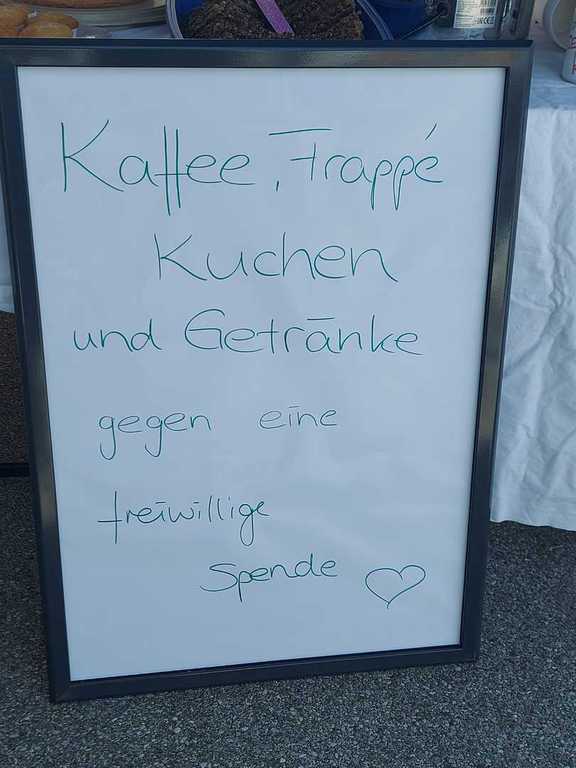 Kaffee, Frappé
Kuchen
und Getränke
gegen eine
freiwillige
Spende ♡